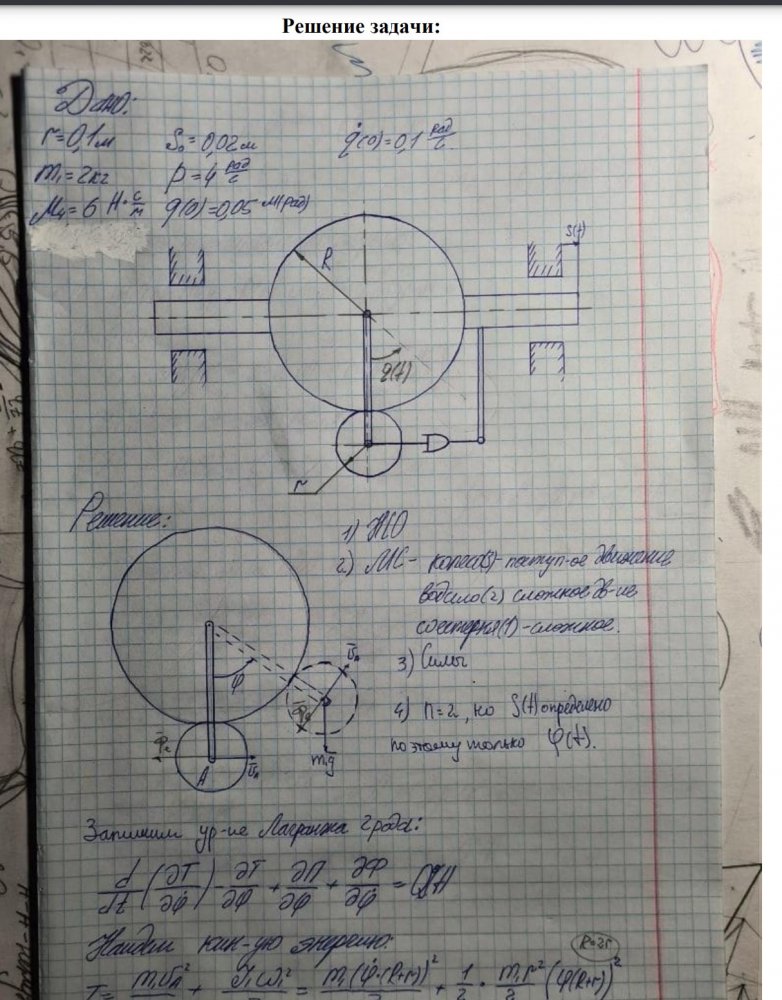 Решение задачи:
Дано:
r=0,1м S₀=0,02м q̇(0)=0,1 рад/с
m₁=2кг p=4 рад/с
M₄=6 Н·с/м q(0)=0,05 м(рад)
S(t)
R
q(t)
r
Решение:
1) ЖО
2) МС – колесо(3)-поступ-ое движение
водило(2) сложное дв-ие
шестерня(1)-сложное.
3) Силы
4) n=2, но S(t) определено
поэтому только φ(t).
φ
A
m₁g
Запишим ур-ие Лагранжа 2 рода:
d/dt (∂T/∂φ̇) - ∂T/∂φ + ∂П/∂φ + ∂Ф/∂φ̇ =
Найдем кин-ую энергию: R=2r
T= m₁v_A² + J₁ω₁² = m₁(φ̇·(R+r))² + 1/2 · m₁r²/2 (φ̇(R+r))²